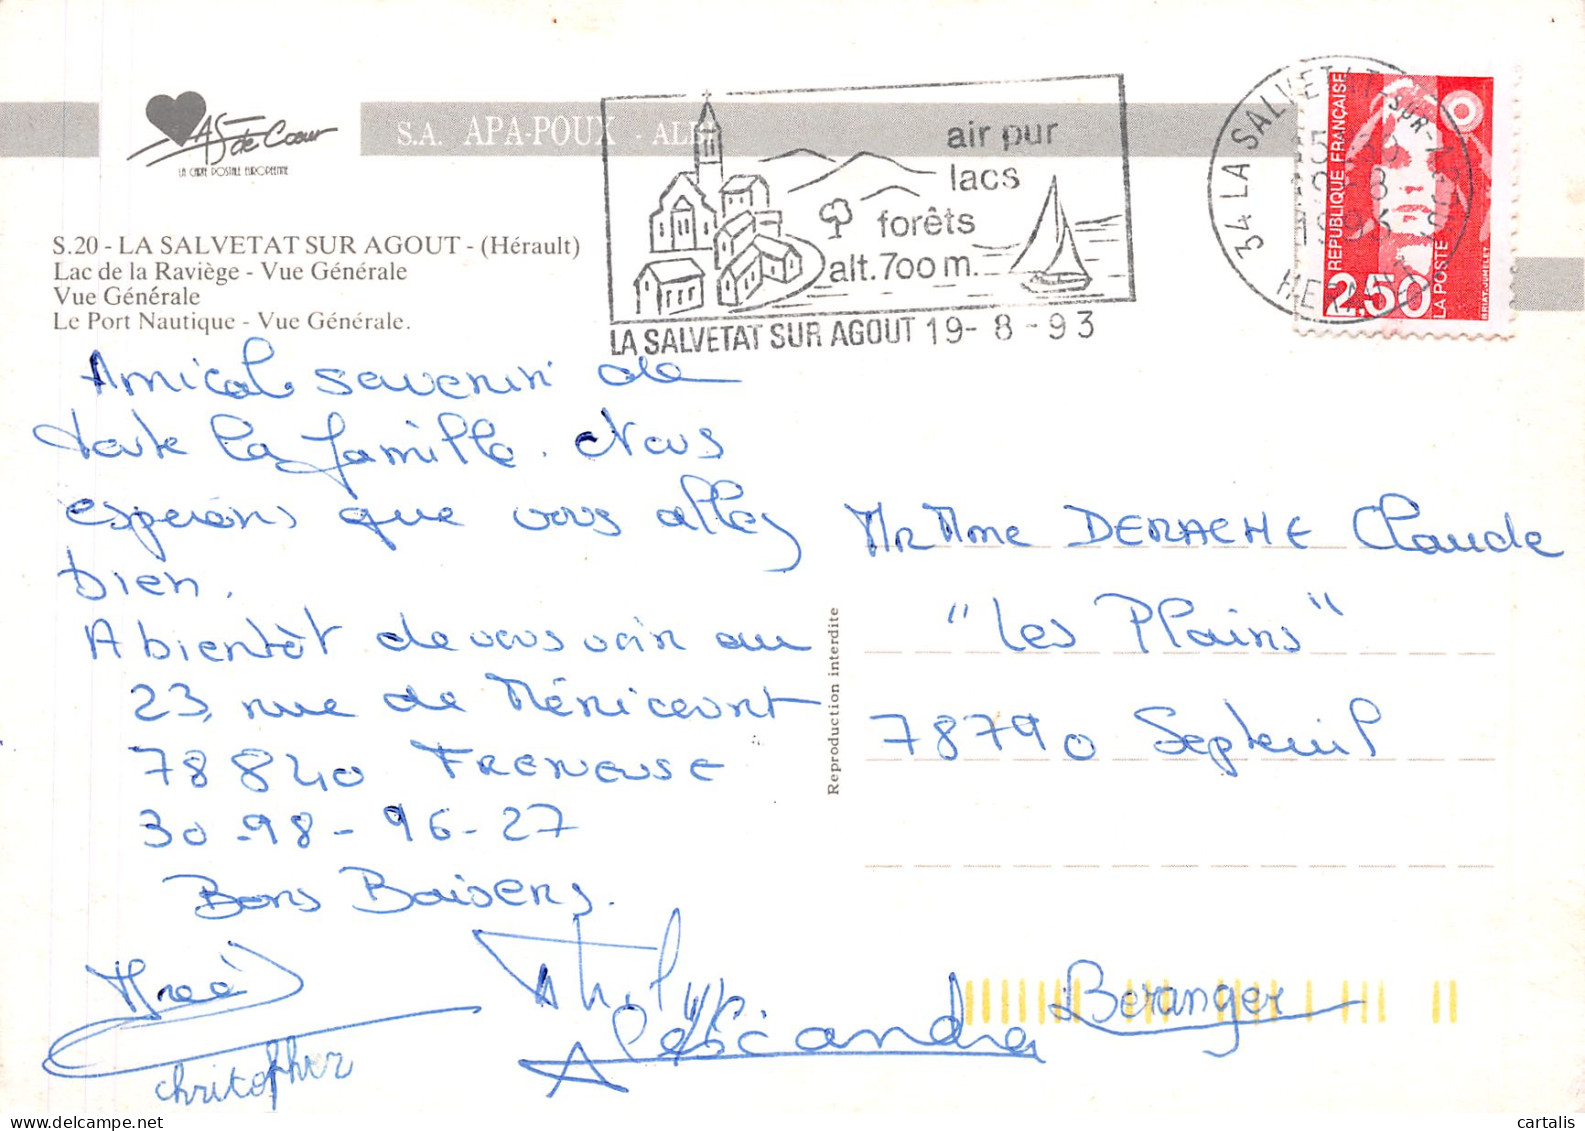 AS de Cœur
LA CARTE POSTALE EUROPEENNE
S.A. APA-POUX - ALBI
S.20 - LA SALVETAT SUR AGOUT - (Hérault)
Lac de la Raviège - Vue Générale
Vue Générale
Le Port Nautique - Vue Générale.
air pur
lacs
forêts
alt. 700 m.
LA SALVETAT SUR AGOUT 19 - 8 - 93
34 LA SALVETAT-SUR-AGOUT
HERAULT
RÉPUBLIQUE FRANÇAISE
2,50
LA POSTE
BRIAT-JUMELET
Amical souvenir de
toute la famille. Nous
esperons que vous allez
bien.
A bientôt de vous voir au
23, rue de Méricourt
78840 FRENEUSE
30-98-96-27
Bons Baisers.
Christopher
Alexandra
Beranger
Reproduction interdite
Mr Mme DERACHE Claude
"Les Plains"
78790 Septeuil
cartalis